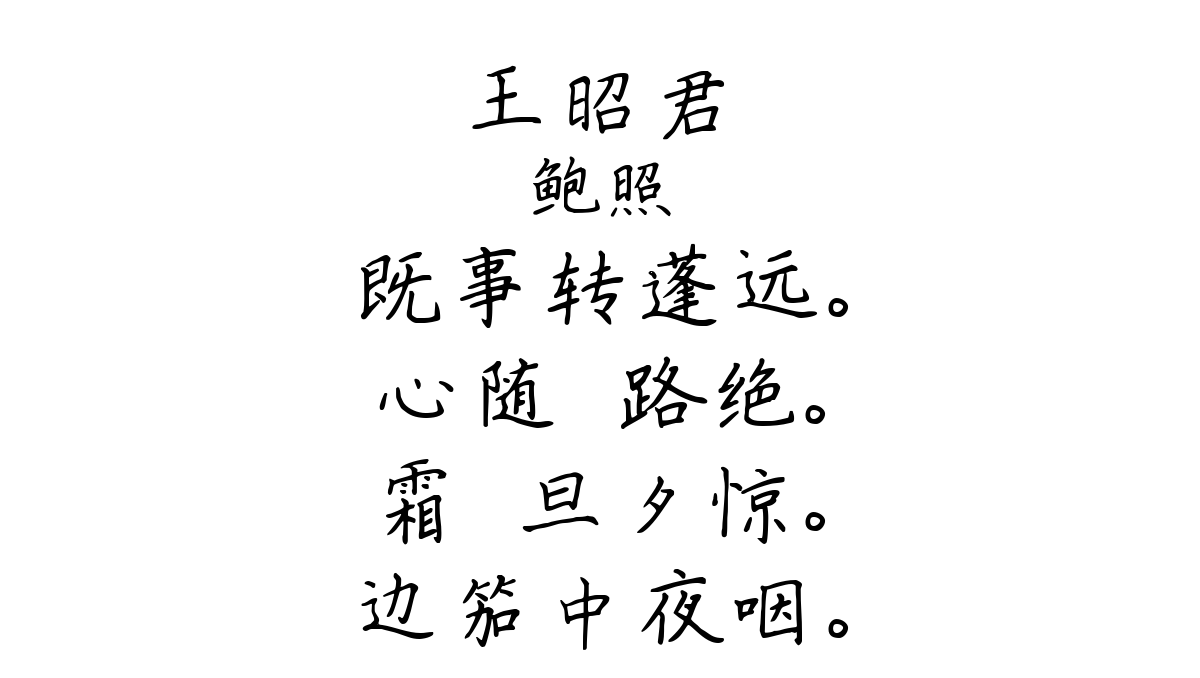 王昭君
鲍照
既事转蓬远。
心随 路绝。
霜 旦夕惊。
边笳中夜咽。